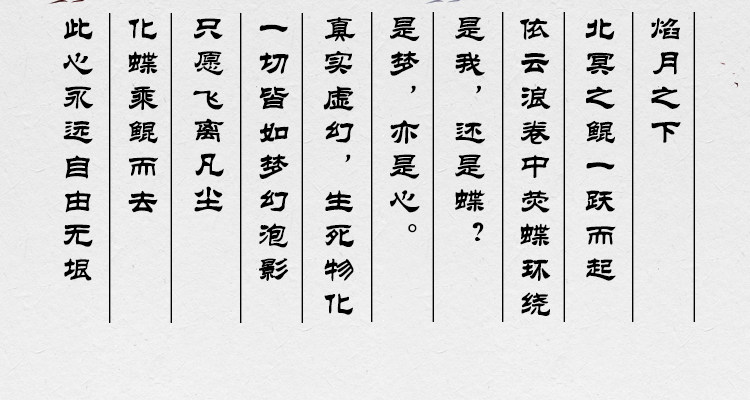 焰月之下
北冥之鲲一跃而起
依云浪卷中荧蝶环绕
是我，还是蝶？
是梦，亦是心。
真实虚幻，生死物化
一切皆如梦幻泡影
只愿飞离凡尘
化蝶乘鲲而去
此心永远自由无垠